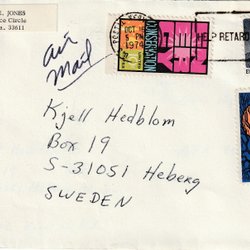 L. JONES
ce Circle
a. 33611
Air
Mail
OCT
5 PM
1974
ENERGY
CONSERVATION
HELP RETARD
Kjell Hedblom
Box 19
S-31051 Heberg
SWEDEN